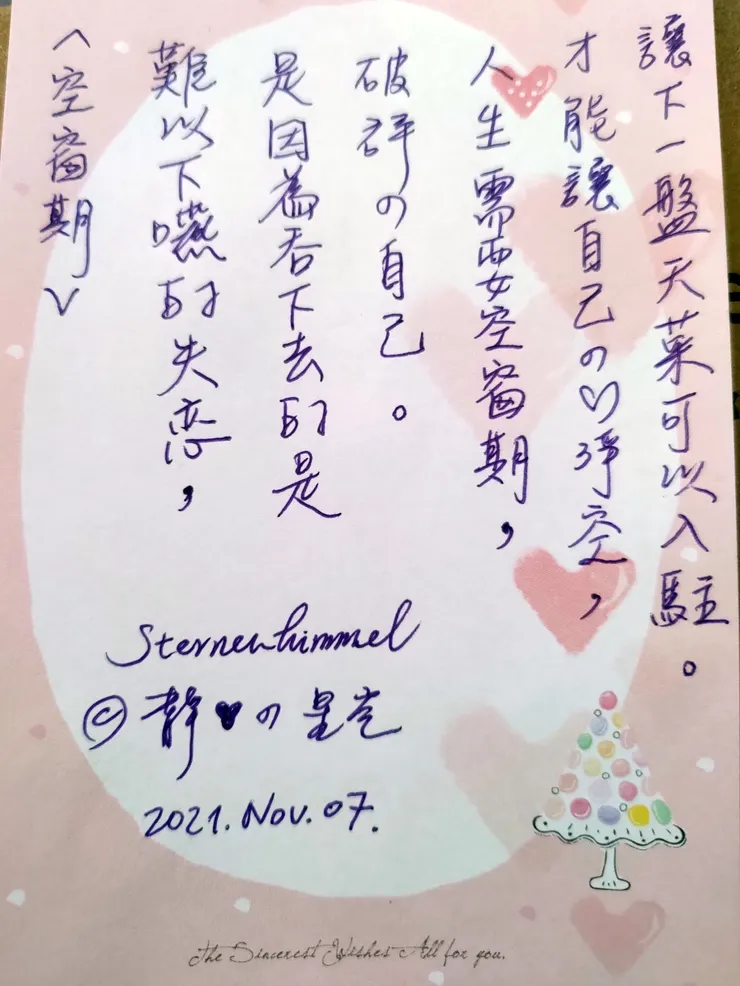 〈空窗期〉
難以下嚥的失恋，
是因為吞下去的是
破碎の自己。
人生需要空窗期，
才能讓自己の♡淨空，
讓下一盤天菜可以入駐。
Sternenhimmel
© 静♥の星空
2021. Nov. 07.
The Sincerest Wishes All for you.